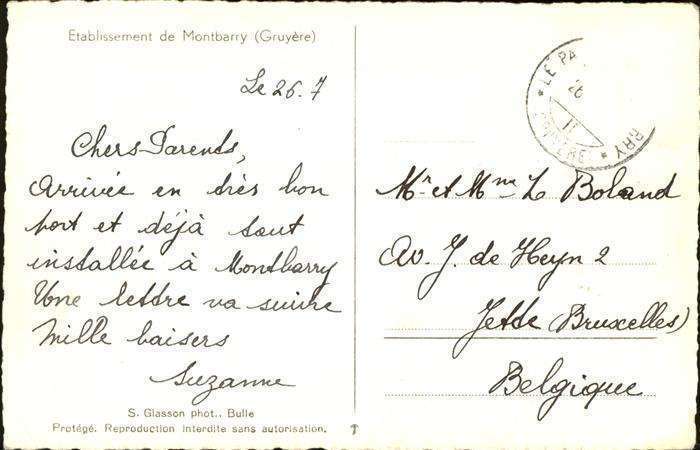 Etablissement de Montbarry (Gruyère)
Le 26.7
Chers Parents,
Arrivée en très bon
port et déjà tout
installée à Montbarry
Une lettre va suivre
Mille baisers
Suzanne
S. Glasson phot., Bulle
Protégé. Reproduction interdite sans autorisation.
LE PA
26
II
RRY
Mr et Mme L Boland
Av. J. de Heyn 2
Jette (Bruxelles)
Belgique